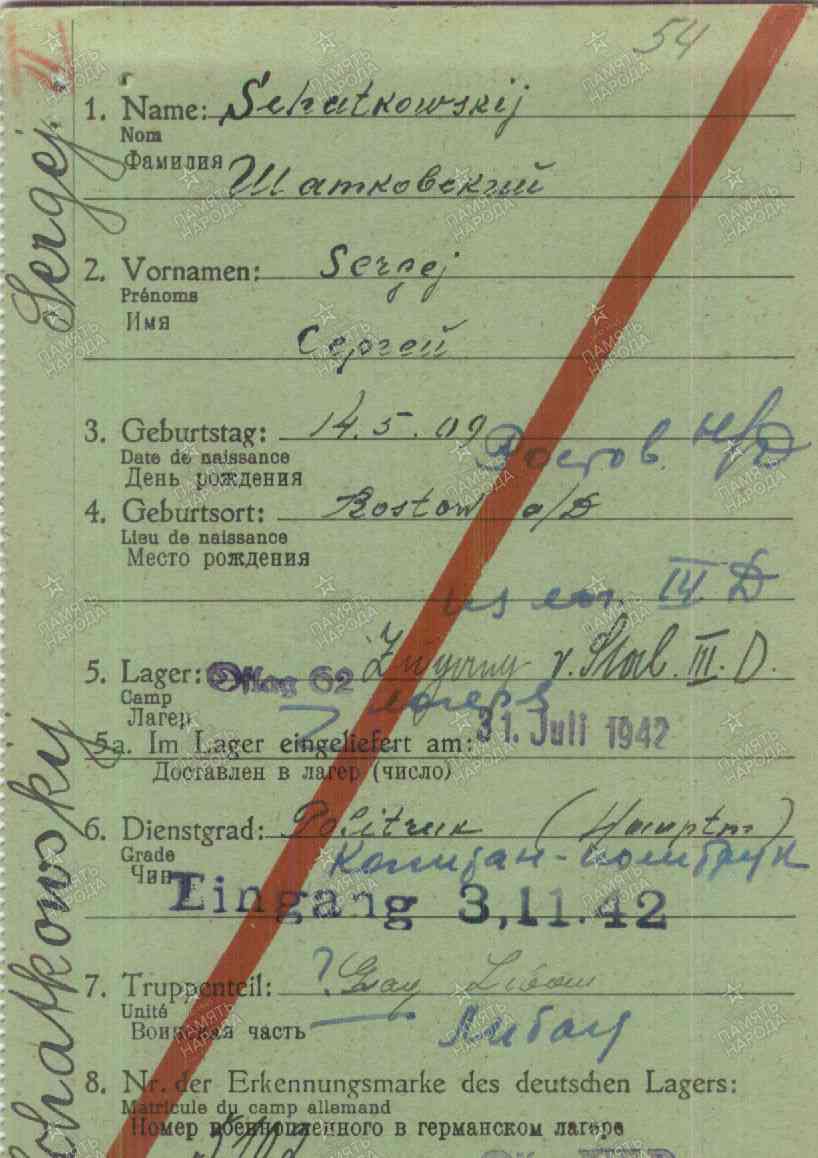 54
1. Name: Schatkowskij
Nom
Фамилия Шатковский
2. Vornamen: Sergej
Prénoms
Имя
Сергей
3. Geburtstag: 14.5.09 Ростов н/Д
Date de naissance
День рождения
4. Geburtsort: Rostow a/D
Lieu de naissance
Место рождения
из лаг. III Д
5. Lager: Oflag 62 Zugang v. Stal. III. D.
Camp лагеря
Лагерь
5a. Im Lager eingeliefert am: 31. Juli 1942
Доставлен в лагер (число)
6. Dienstgrad: Politruk (Hauptm)
Grade Капитан-политрук
Чин
Eingang 3.11.42
7. Truppenteil: ? Libau
Unité
Воинская часть Либау
8. Nr. der Erkennungsmarke des deutschen Lagers:
Matricule du camp allemand
Номер военнопленного в германском лагере
Schatkowskij Sergej
ПАМЯТЬ НАРОДА